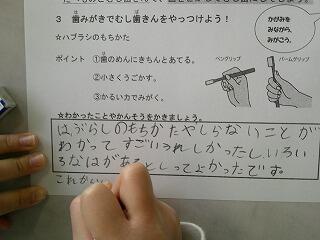 3 歯みがきでむし歯きんをやっつけよう！
かがみを
みながら、
みがこう。
☆ハブラシのもちかた
ポイント ①歯のめんにきちんとあてる。
ペングリップ
パームグリップ
②小さくうごかす。
③かるい力でみがく。
☆わかったことやかんそうをかきましょう。
はぶらしのもちかたやしらないことが
わかってすごいうれしかったし、いろい
ろなはがあるとしってよかったです。
これから